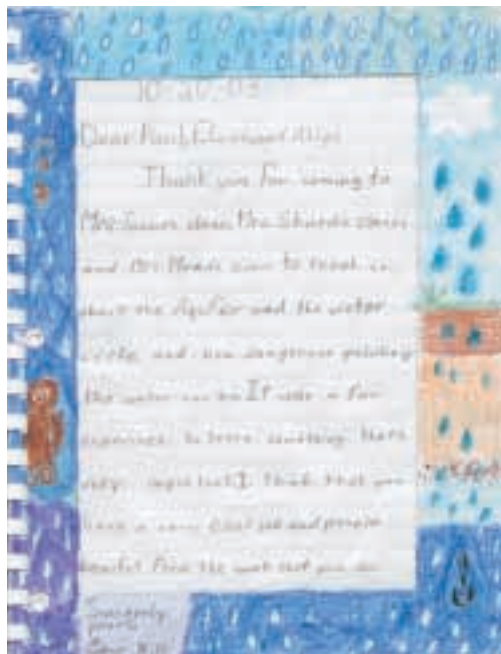 10-20-03
Dear
Thank you for coming to
Mrs. class, Mrs. class
and Mrs. to teach us
about the Aquifer and the water
cycle, and how dangerous polluting
the water can be. It was a fun
experience to learn something that's
very important. I think that you
have a very cool job and people
benefit from the work that you do.
Sincerely
yours